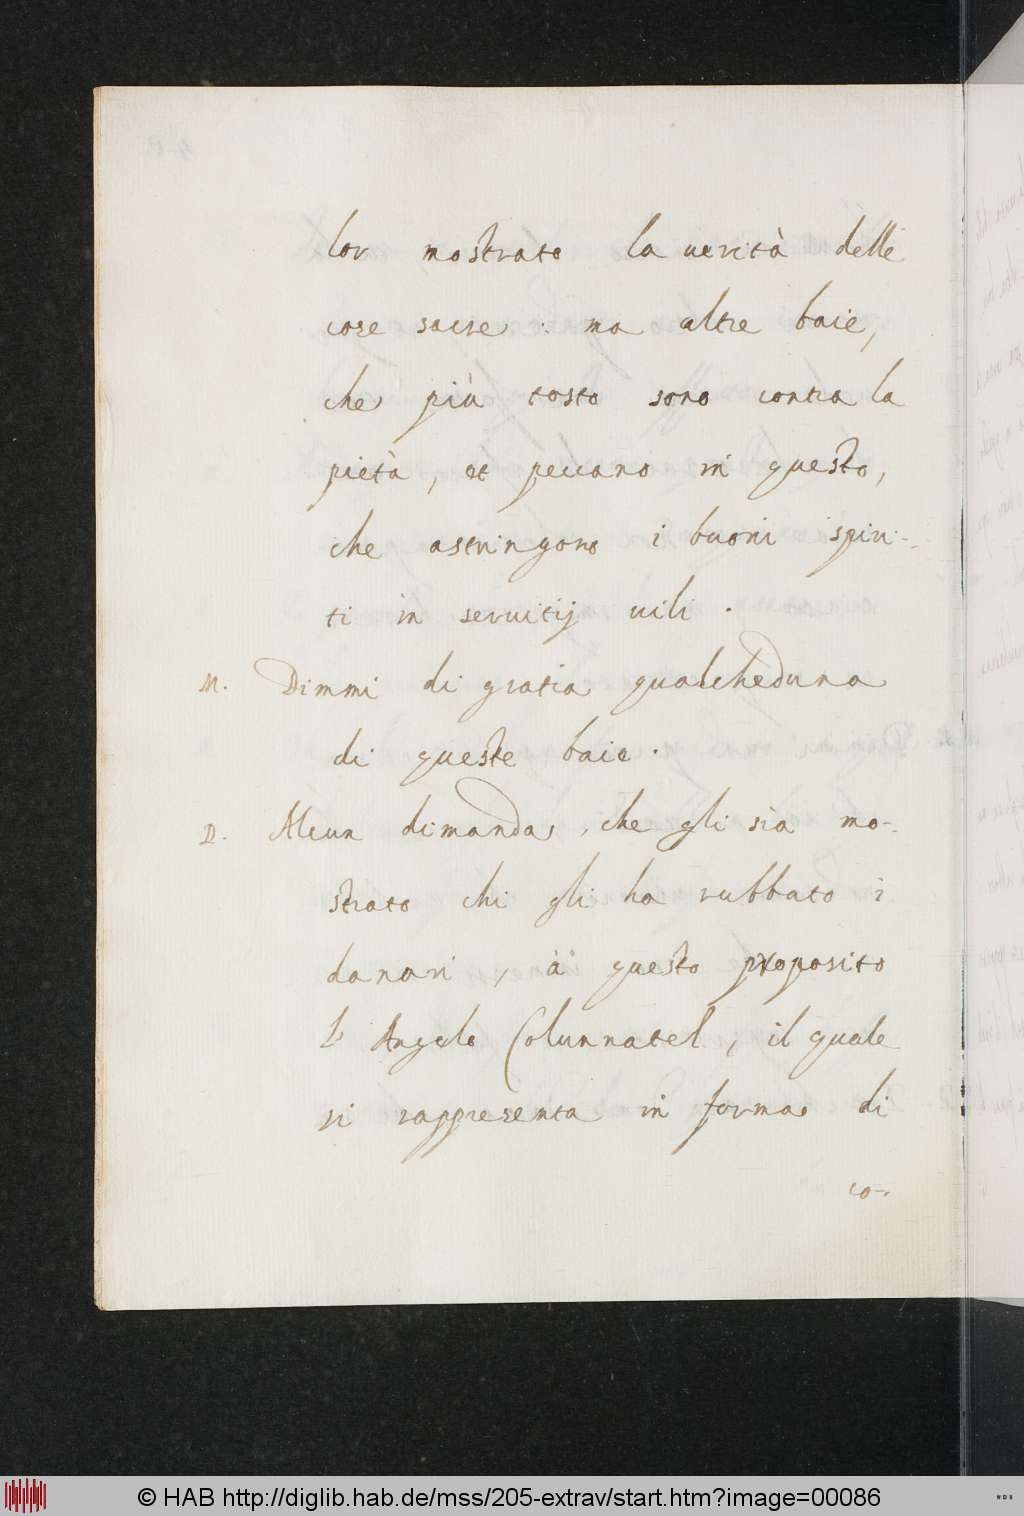 lor mostrato la uerità delle
cose sacre: ma altre baie,
che più tosto sono contra la
pietà, et peccano in questo,
che astringono i buoni ispiri-
ti in seruitij uili.
M. Dimmi di gratia qualcheduna
di queste baie.
D. Alcun dimanda, che gli sia mo-
strato chi gli ha rubbato i
danari, à questo proposito
l'Angelo Colunnatel, il quale
si rappresenta in forma di
co-
© HAB http://diglib.hab.de/mss/205-extrav/start.htm?image=00086